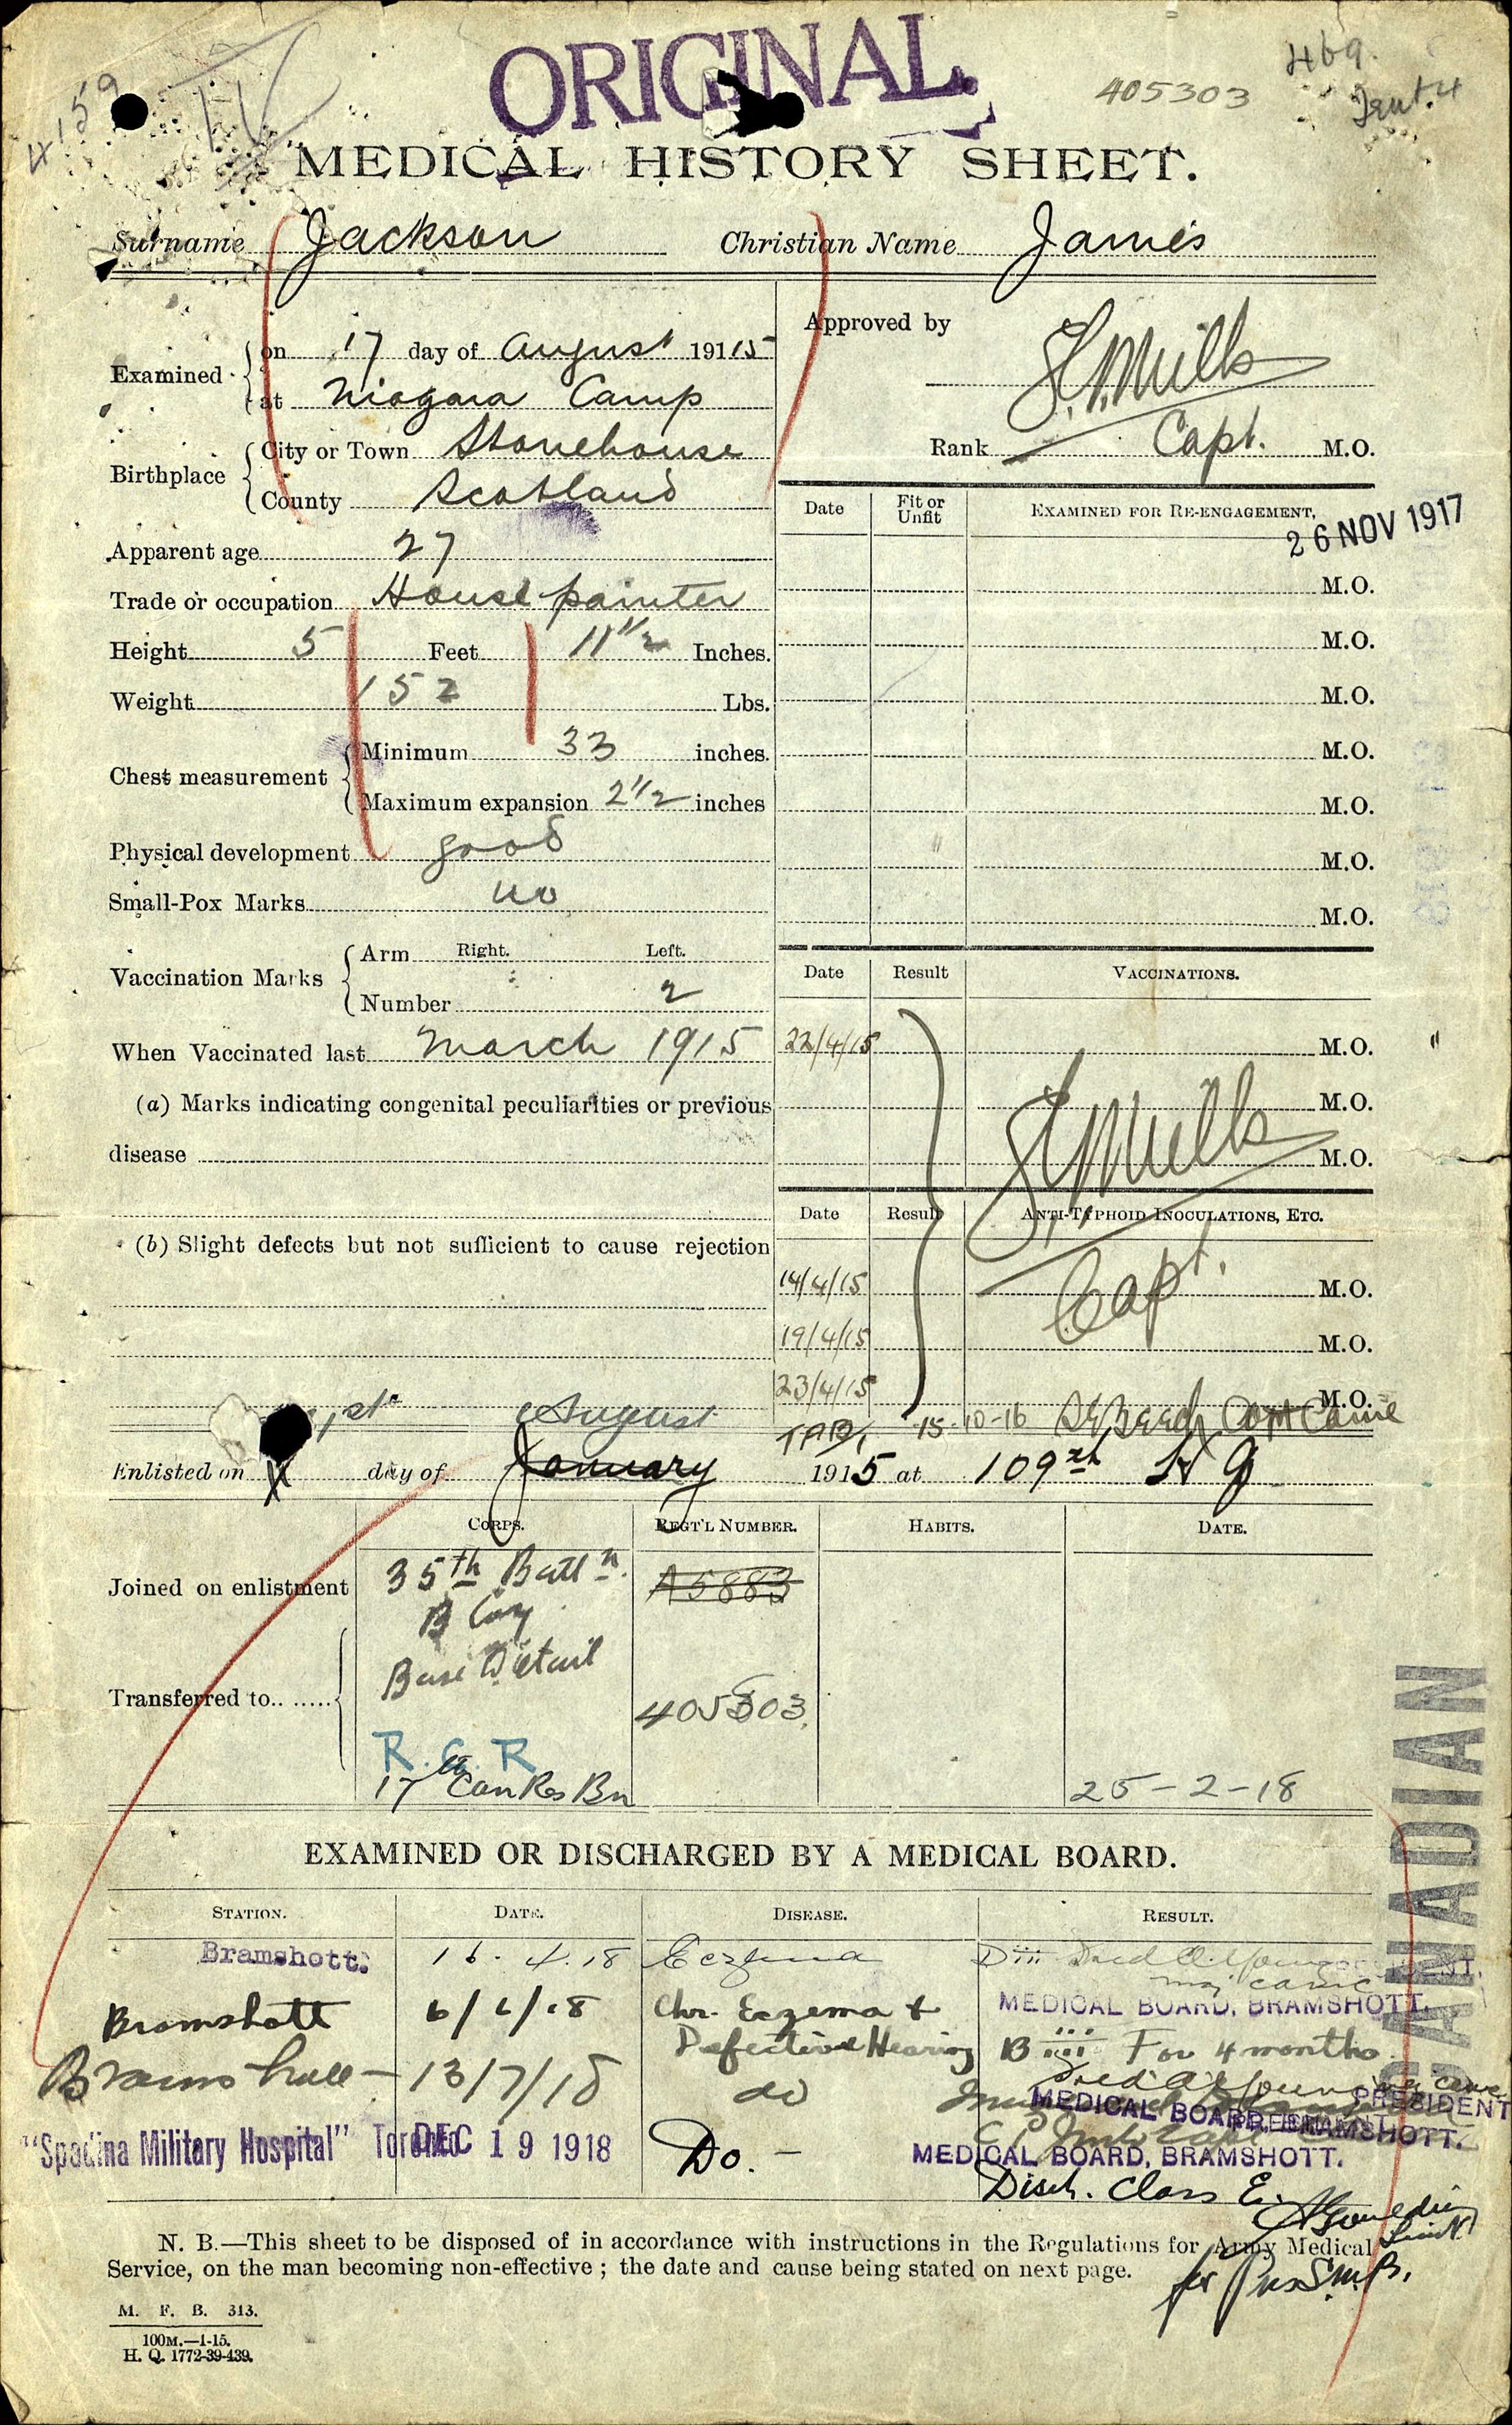 ORIGINAL.
4159
405303
469.
Tent. 4
MEDICAL HISTORY SHEET.
Surname Jackson Christian Name James
Examined on 17 day of August 191 15
at Niagara Camp
Approved by
Mills
Rank Capt. M.O.
Birthplace City or Town Stonehouse
County Scotland
Apparent age 27
Trade or occupation House painter
Height 5 Feet 11 1/2 Inches.
Weight 152 Lbs.
Chest measurement Minimum 33 inches.
Maximum expansion 2 1/2 inches
Physical development good
Small-Pox Marks no
Vaccination Marks Arm Right. Left.
Number 2
When Vaccinated last March 1915
(a) Marks indicating congenital peculiarities or previous
disease
(b) Slight defects but not sufficient to cause rejection
Date Fit or Unfit EXAMINED FOR RE-ENGAGEMENT,
26 NOV 1917
M.O.
M.O.
M.O.
M.O.
M.O.
M.O.
M.O.
Date Result VACCINATIONS.
22/4/15 M.O.
M.O.
Mills
M.O.
Date Result ANTI-TYPHOID INOCULATIONS, ETC.
Capt.
14/4/15 M.O.
19/4/15 M.O.
23/4/15 M.O.
TAB, 15-10-16
1st August
Enlisted on day of January 1915 at 109th H Q
CORPS. REGT'L NUMBER. HABITS. DATE.
Joined on enlistment 35th Battn. A5883
B Coy
Transferred to.. ..... Base Detail
405303
R. C. R
17th Can Res Bn 25-2-18
CANADIAN
EXAMINED OR DISCHARGED BY A MEDICAL BOARD.
STATION. DATE. DISEASE. RESULT.
Bramshott. 16.4.18 Eczema Diii
MEDICAL BOARD, BRAMSHOTT.
Bramshott 6/6/18 Chr. Eczema &
Defective Hearing Biii For 4 months
Bramshott 13/7/18 do
PRESIDENT
MEDICAL BOARD, BRAMSHOTT.
MEDICAL BOARD, BRAMSHOTT.
"Spadina Military Hospital" Toronto DEC 19 1918 Do. -
Disch. Class E.
Lieut.
for Pres S.M.B.
N. B.—This sheet to be disposed of in accordance with instructions in the Regulations for Army Medical
Service, on the man becoming non-effective ; the date and cause being stated on next page.
M. F. B. 313.
100M.—1-15.
H. Q. 1772-39-439.